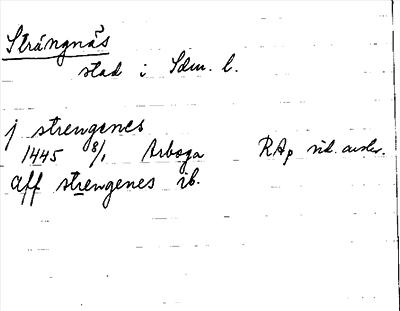 Strängnäs
stad i Sdm. l.
j strengenes
1445 8/1 Arboga RAp vid. avskr.
aff strengenes ib.